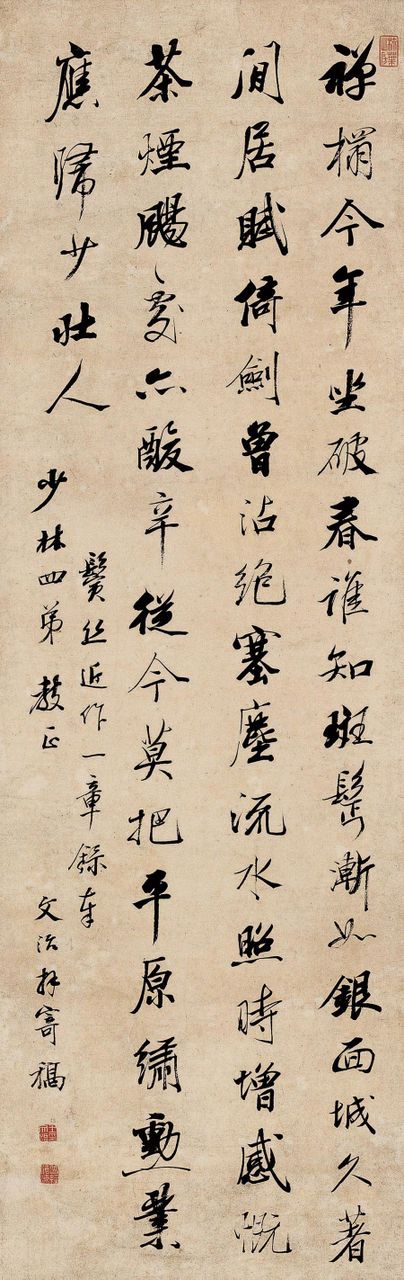 禅榻今年坐破春誰知斑鬢漸如銀面城久著
閒居賦倚劍曾沾絶塞塵流水照時增感慨
茶煙颺處亦酸辛從今莫把平原繡勳業
應歸少壯人
鬢丝近作一章録奉
少林四弟教正
文治拜寄稿